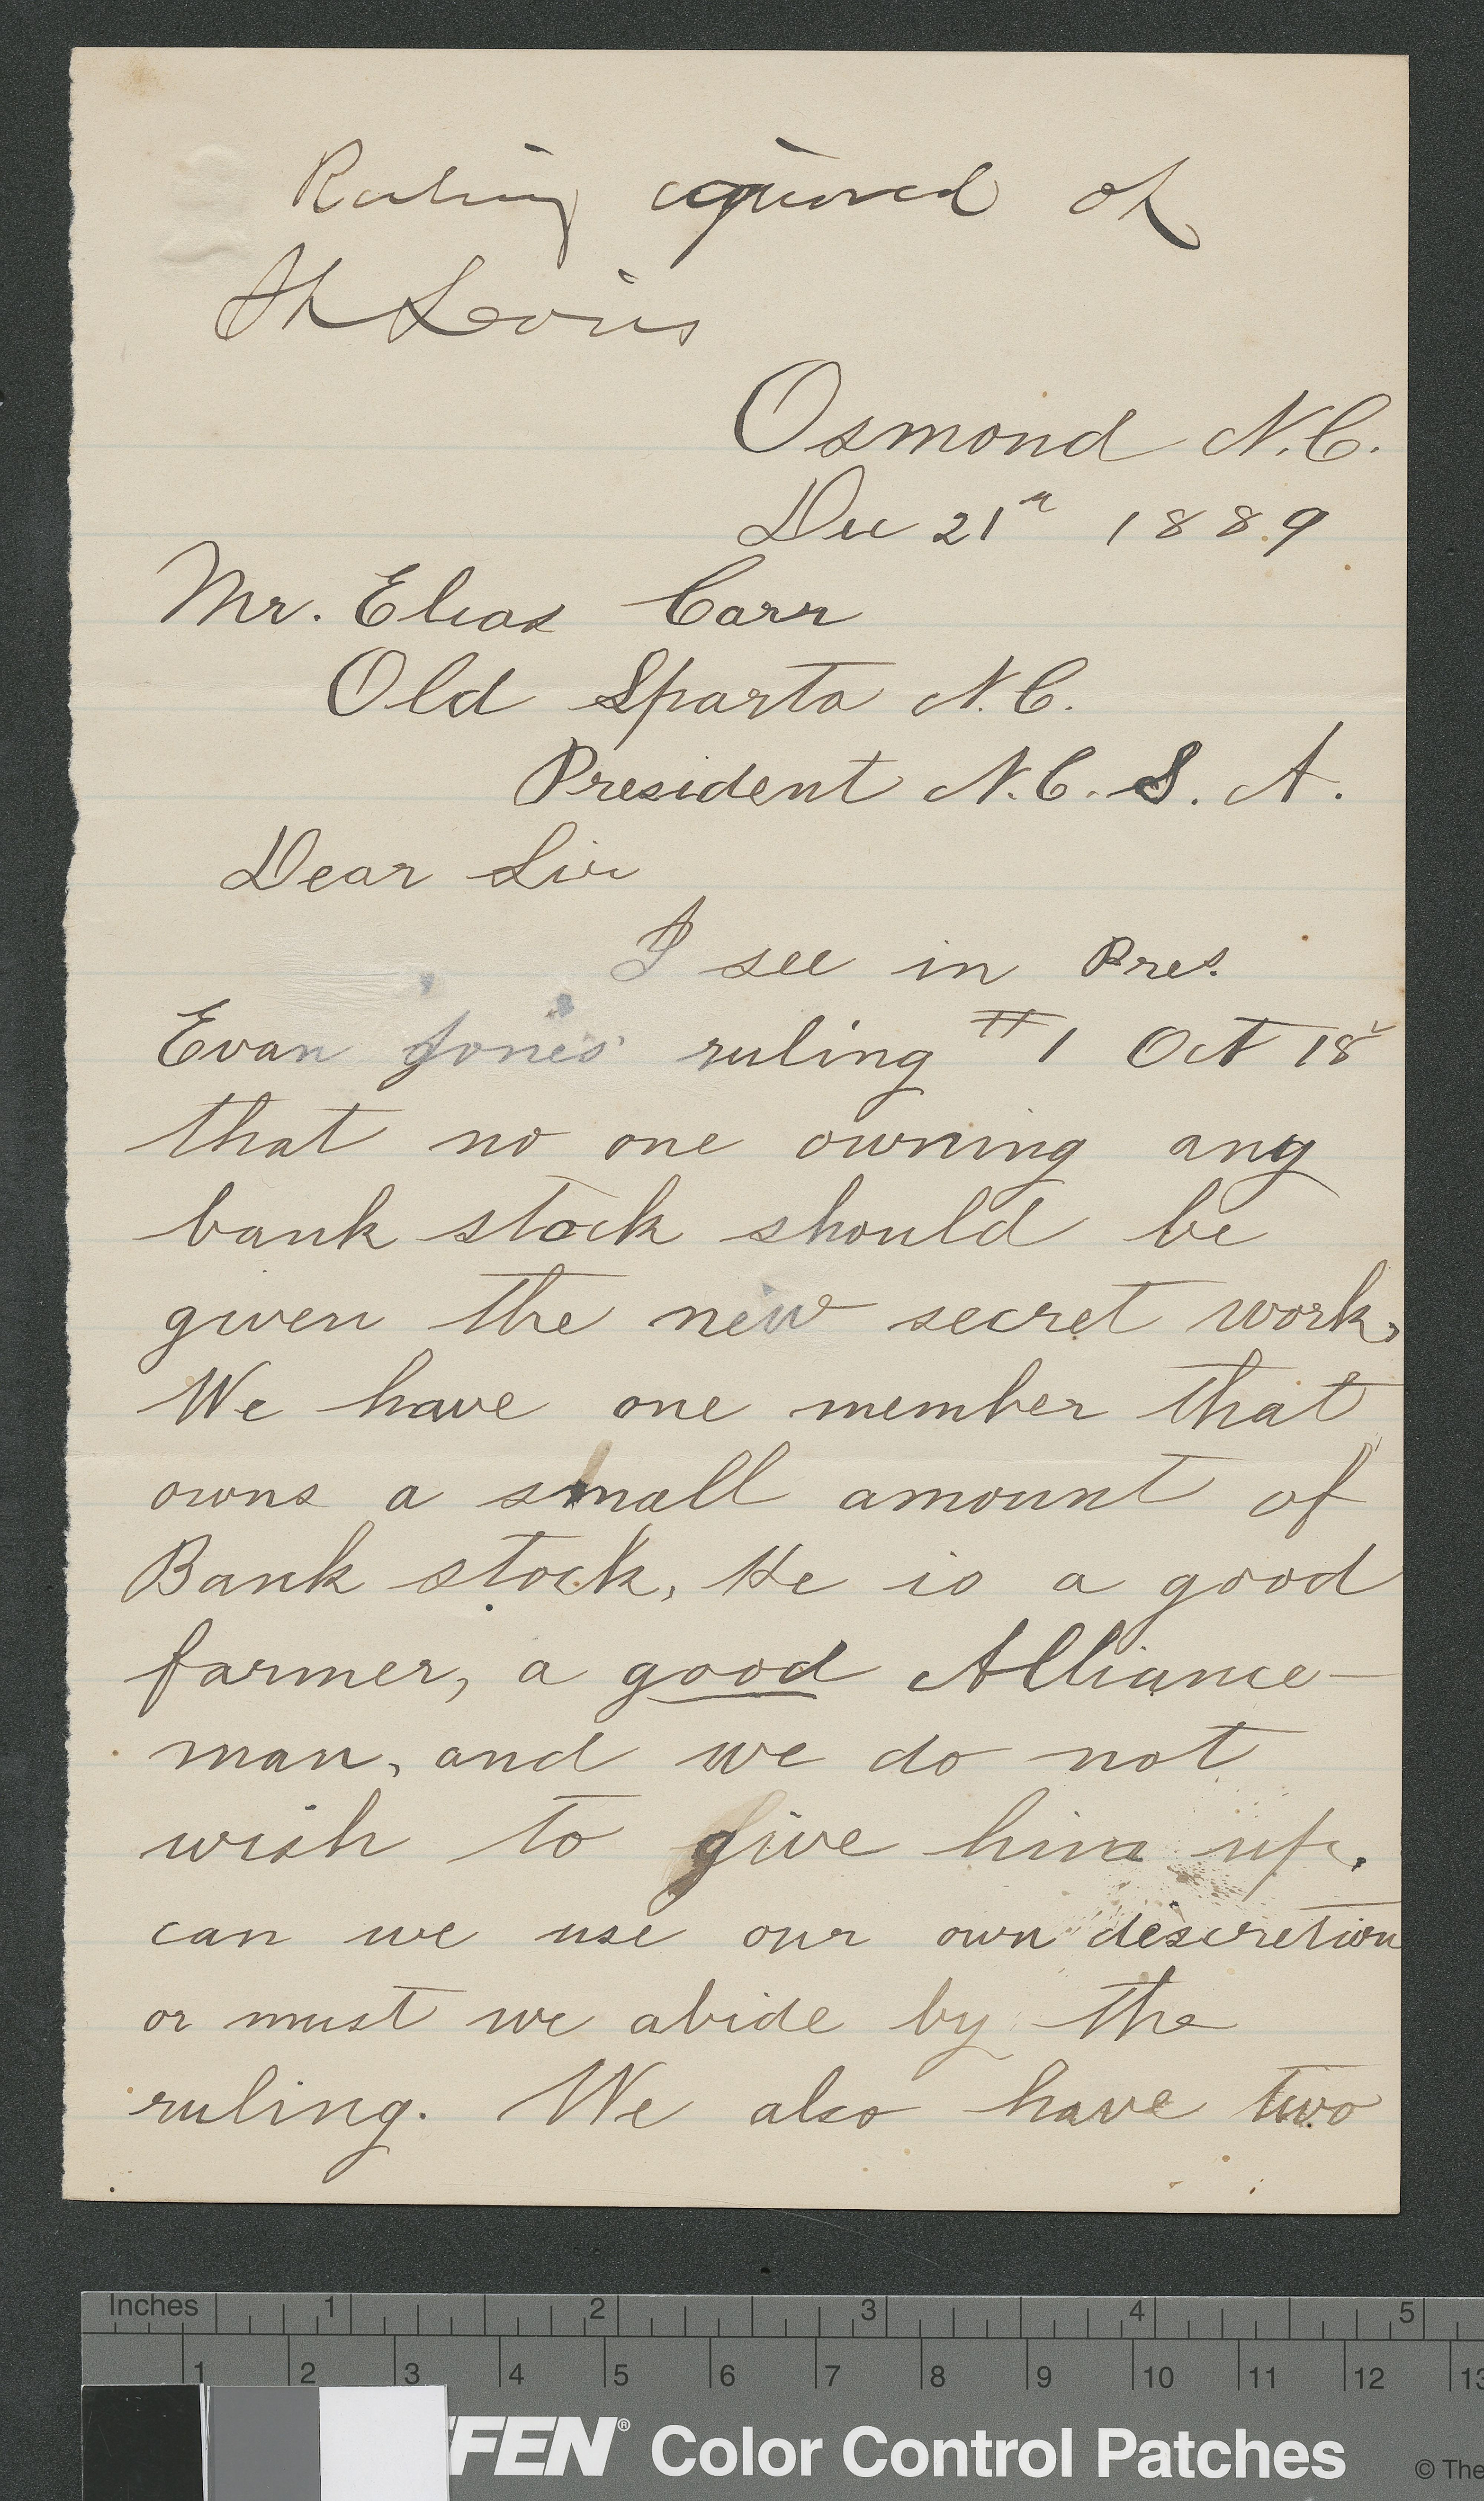 Ruling
St Louis
Osmond N.C.
Dec 21st 1889
Mr. Elias Carr
Old Sparta N.C.
President N.C. S. A.
Dear Sir
I see in Pres.
Evan Jones' ruling #1 Oct 18
that no one owning any
bank stock should be
given the new secret work,
We have one member that
owns a small amount of
Bank stock, He is a good
farmer, a good Alliance-
man, and we do not
wish to give him up.
can we use our own descretion
or must we abide by the
ruling. We also have two
Inches 1 2 3 4 5
1 2 3 4 5 6 7 8 9 10 11 12 13
FFEN® Color Control Patches © The